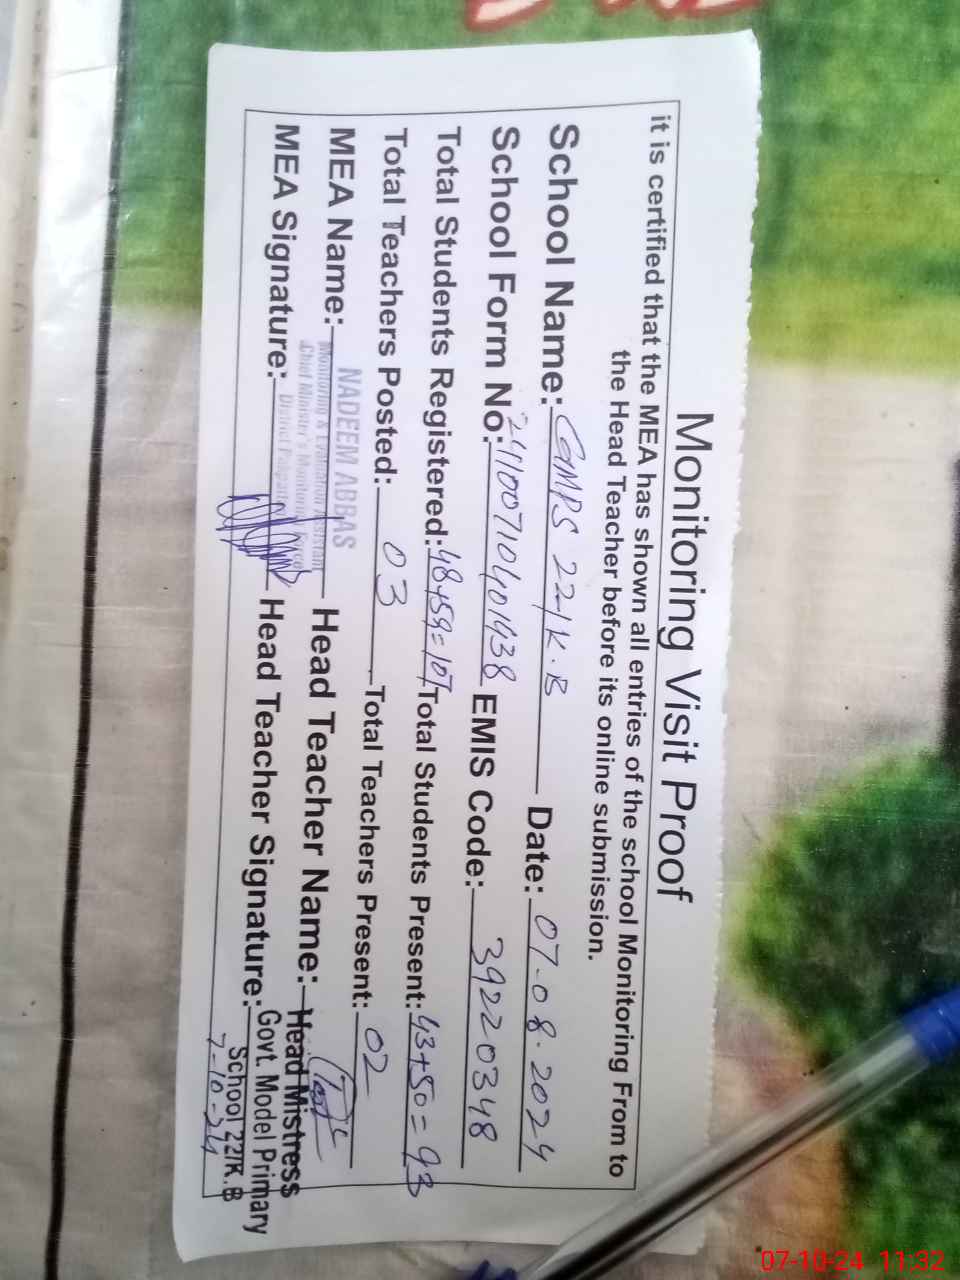 Monitoring Visit Proof
it is certified that the MEA has shown all entries of the school Monitoring From to
the Head Teacher before its online submission.
School Name: GMPS 22-1K.B Date: 07.08.2024
School Form No: 2410071040401438 EMIS Code: 39220348
Total Students Registered: 48+59=107 Total Students Present: 43+50=93
Total Teachers Posted: 03 Total Teachers Present: 02
MEA Name: NADEEM ABBAS Head Teacher Name:
Monitoring & Evaluation Assistant
Chief Minister's Monitoring Force
District Pakpattan
MEA Signature: Head Teacher Signature:
Head Mistress
Govt. Model Primary
School 22/K.B
7-10-24
07-10-24 11:32